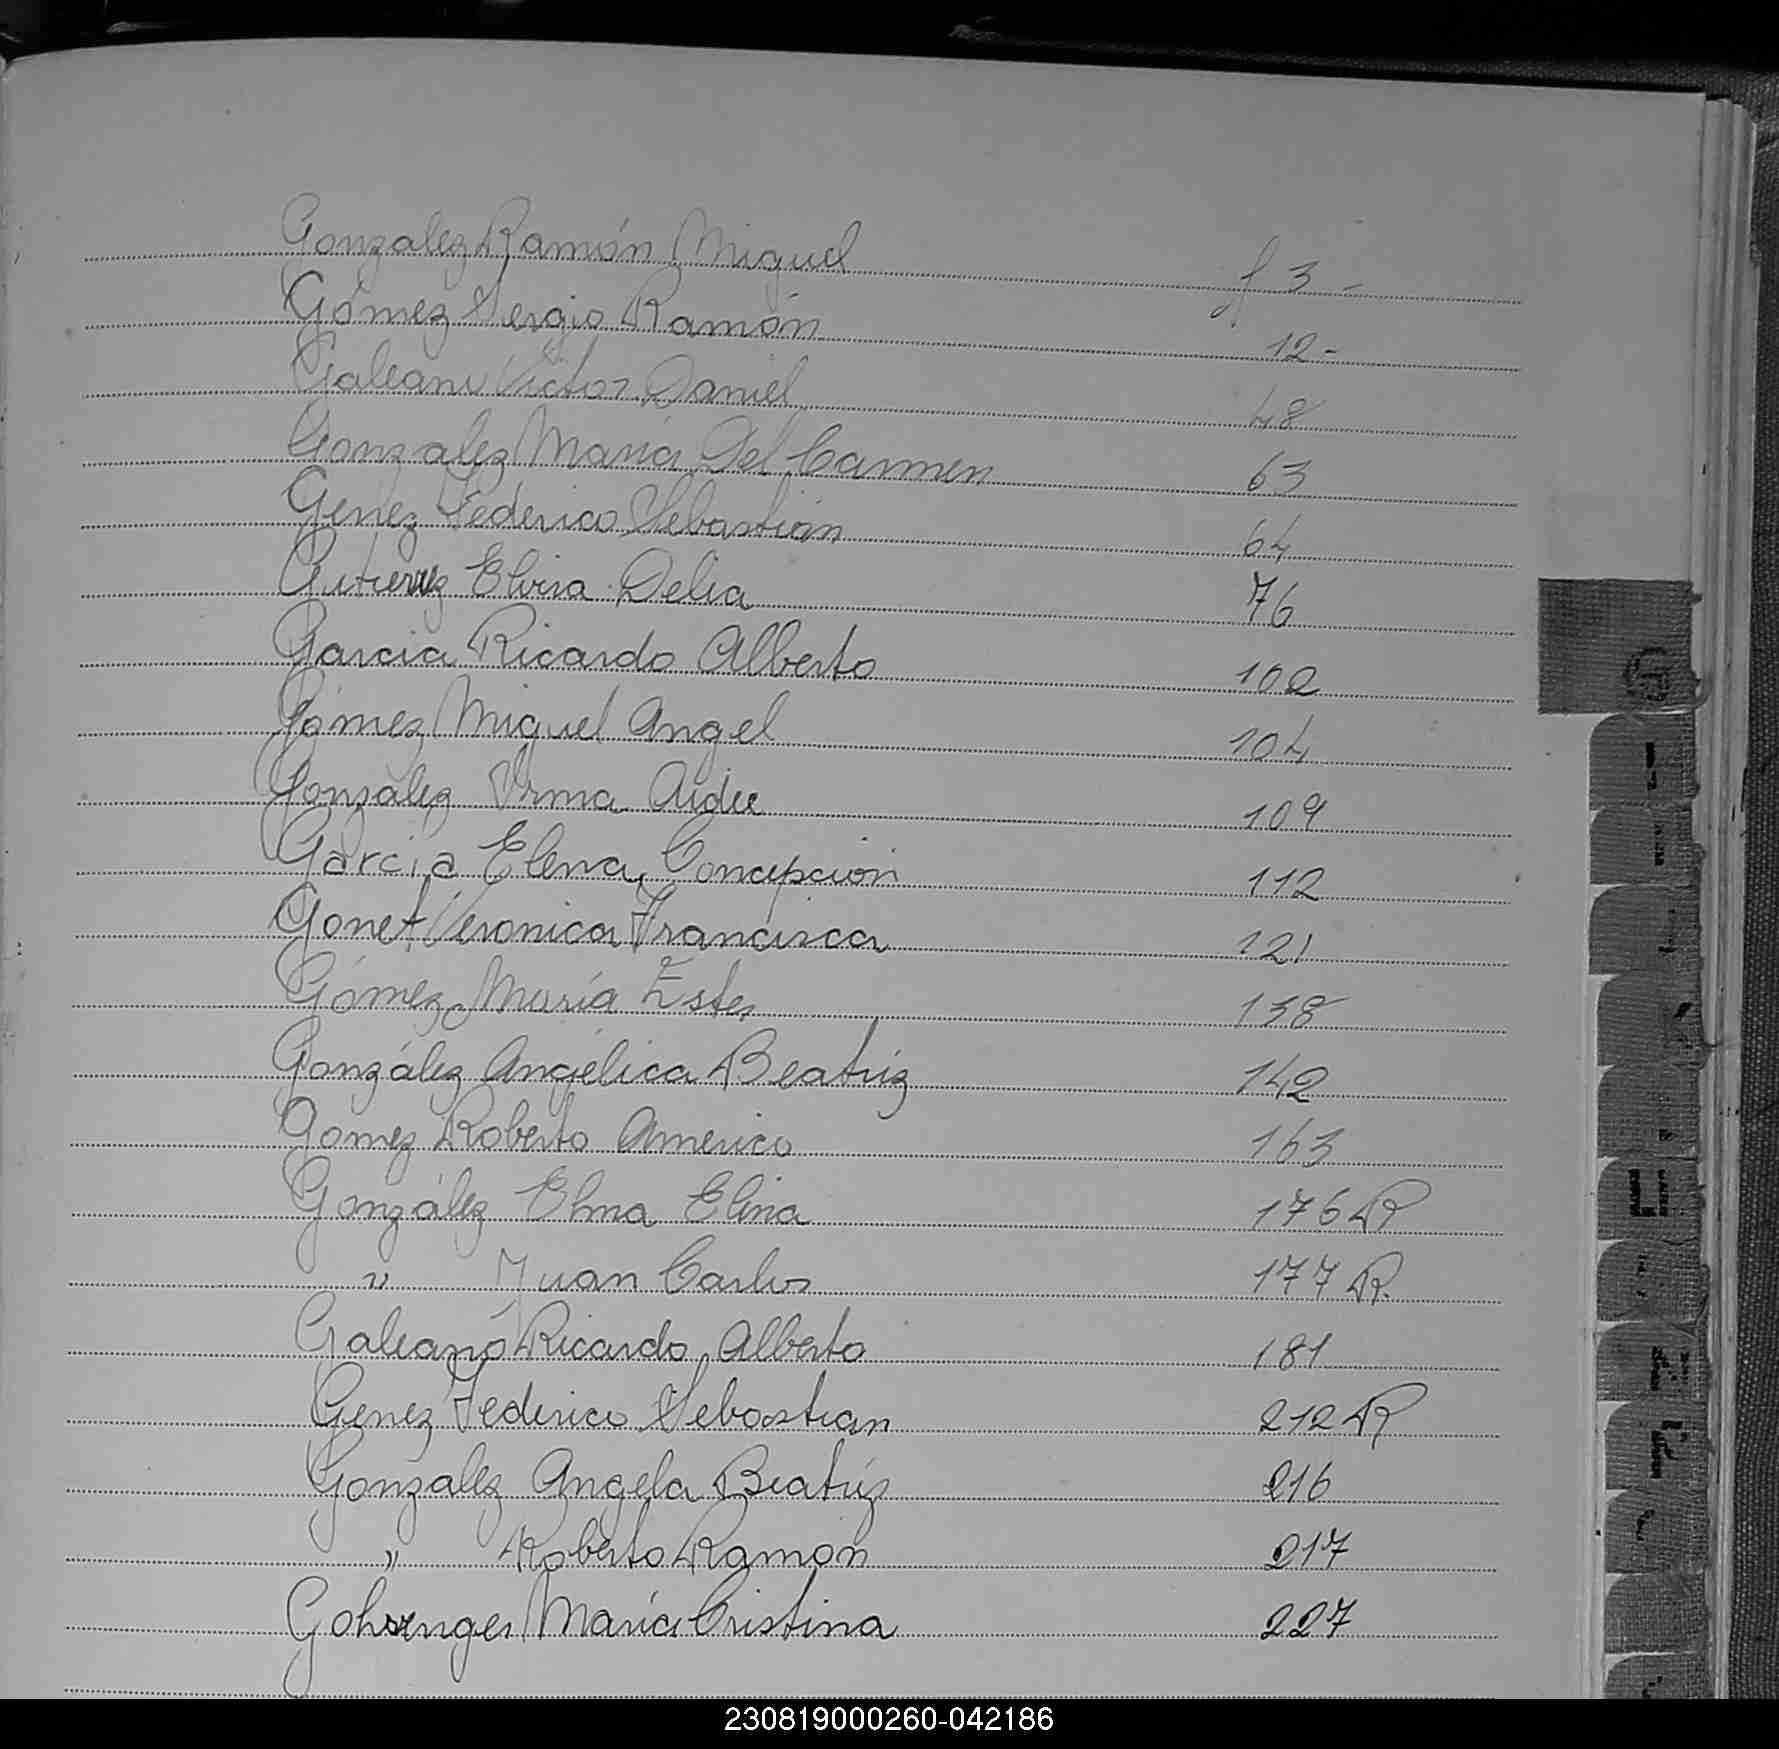 Gonzalez Ramón Miguel f 3 -
Gómez Sergio Ramón 12 -
Galeano Victor Daniel 48
Gonzalez Maria Del Carmen 63
Genez Federico Sebastián 64
Gutierrez Elvira Delia 76
Garcia Ricardo Alberto 102
Gómez Miguel Angel 104
Gonzalez Irma Aidee 109
Garcia Elena Concepción 112
Gonet Veronica Francisca 121
Gómez María Ester 138
González Angélica Beatriz 142
Gomez Roberto Americo 163
González Elma Elina 176 R
" Juan Carlos 177 R.
Galeano Ricardo Alberto 181
Genez Federico Sebastian 212 R
Gonzalez Angela Beatriz 216
" Roberto Ramón 217
María Cristina 227
G
230819000260-042186